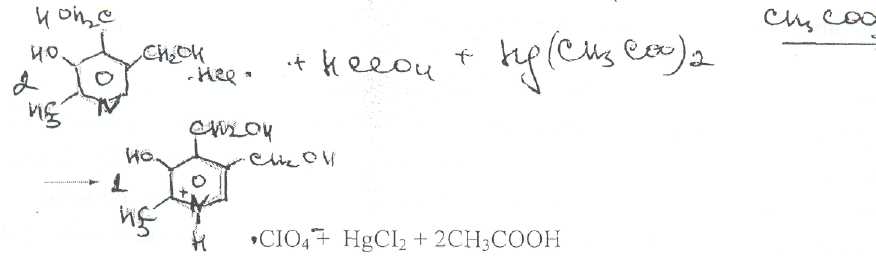 HOH₂C
HO CH₂OH
2 ·HCl + HClO₄ + Hg(CH₃COO)₂ CH₃COO
H₃C N
CH₂OH
HO CH₂OH
→ 2
+
H₃C N
H
·ClO₄⁻ + HgCl₂ + 2CH₃COOH